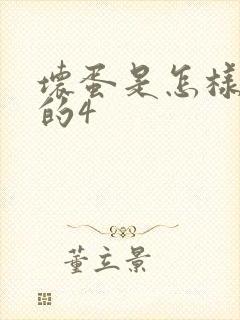 壞蛋是怎樣
的4
董立景